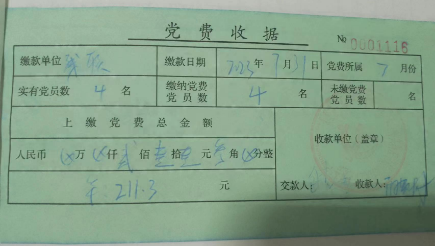 党费收据
No 0001116
缴款单位 残联 缴款日期 2023年7月31日 党费所属 7 月份
实有党员数 4 名 缴纳党费党员数 4 名 未缴党费党员数 名
上缴党费总金额
收款单位（盖章）
人民币 万 仟 贰 佰 壹 拾 壹 元 叁 角 分整
211.3 元
交款人： 收款人：